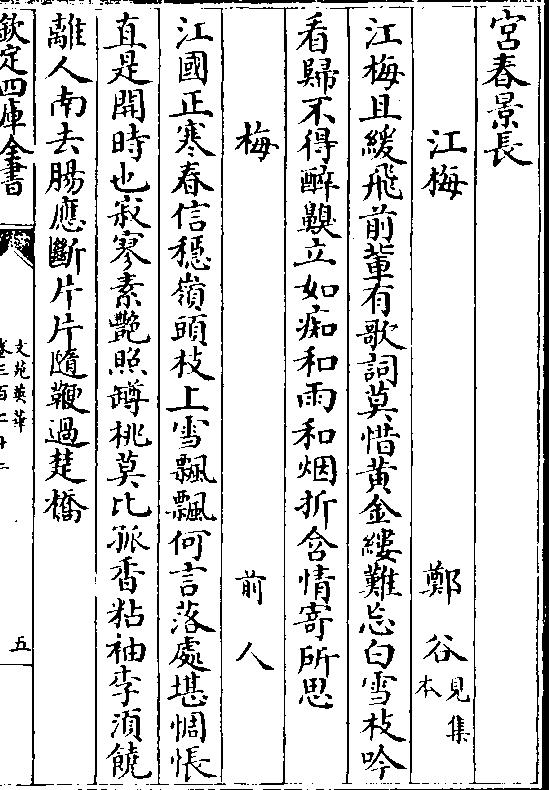 宮春景長
江梅　鄭谷見集本
江梅且緩飛前輩有歌詞莫惜黄金縷難忘白雪枝吟
看歸不得醉嗅立如痴和雨和烟折含情寄所思
梅　前人
江國正寒春信穩嶺頭枝上雪飄飄何言落處堪惆悵
直是開時也寂寥素艷照罇桃莫比孤香粘袖李湏饒
離人南去腸應斷片片隨鞭過楚橋
欽定四庫全書
文苑英華
卷三百二十二
五